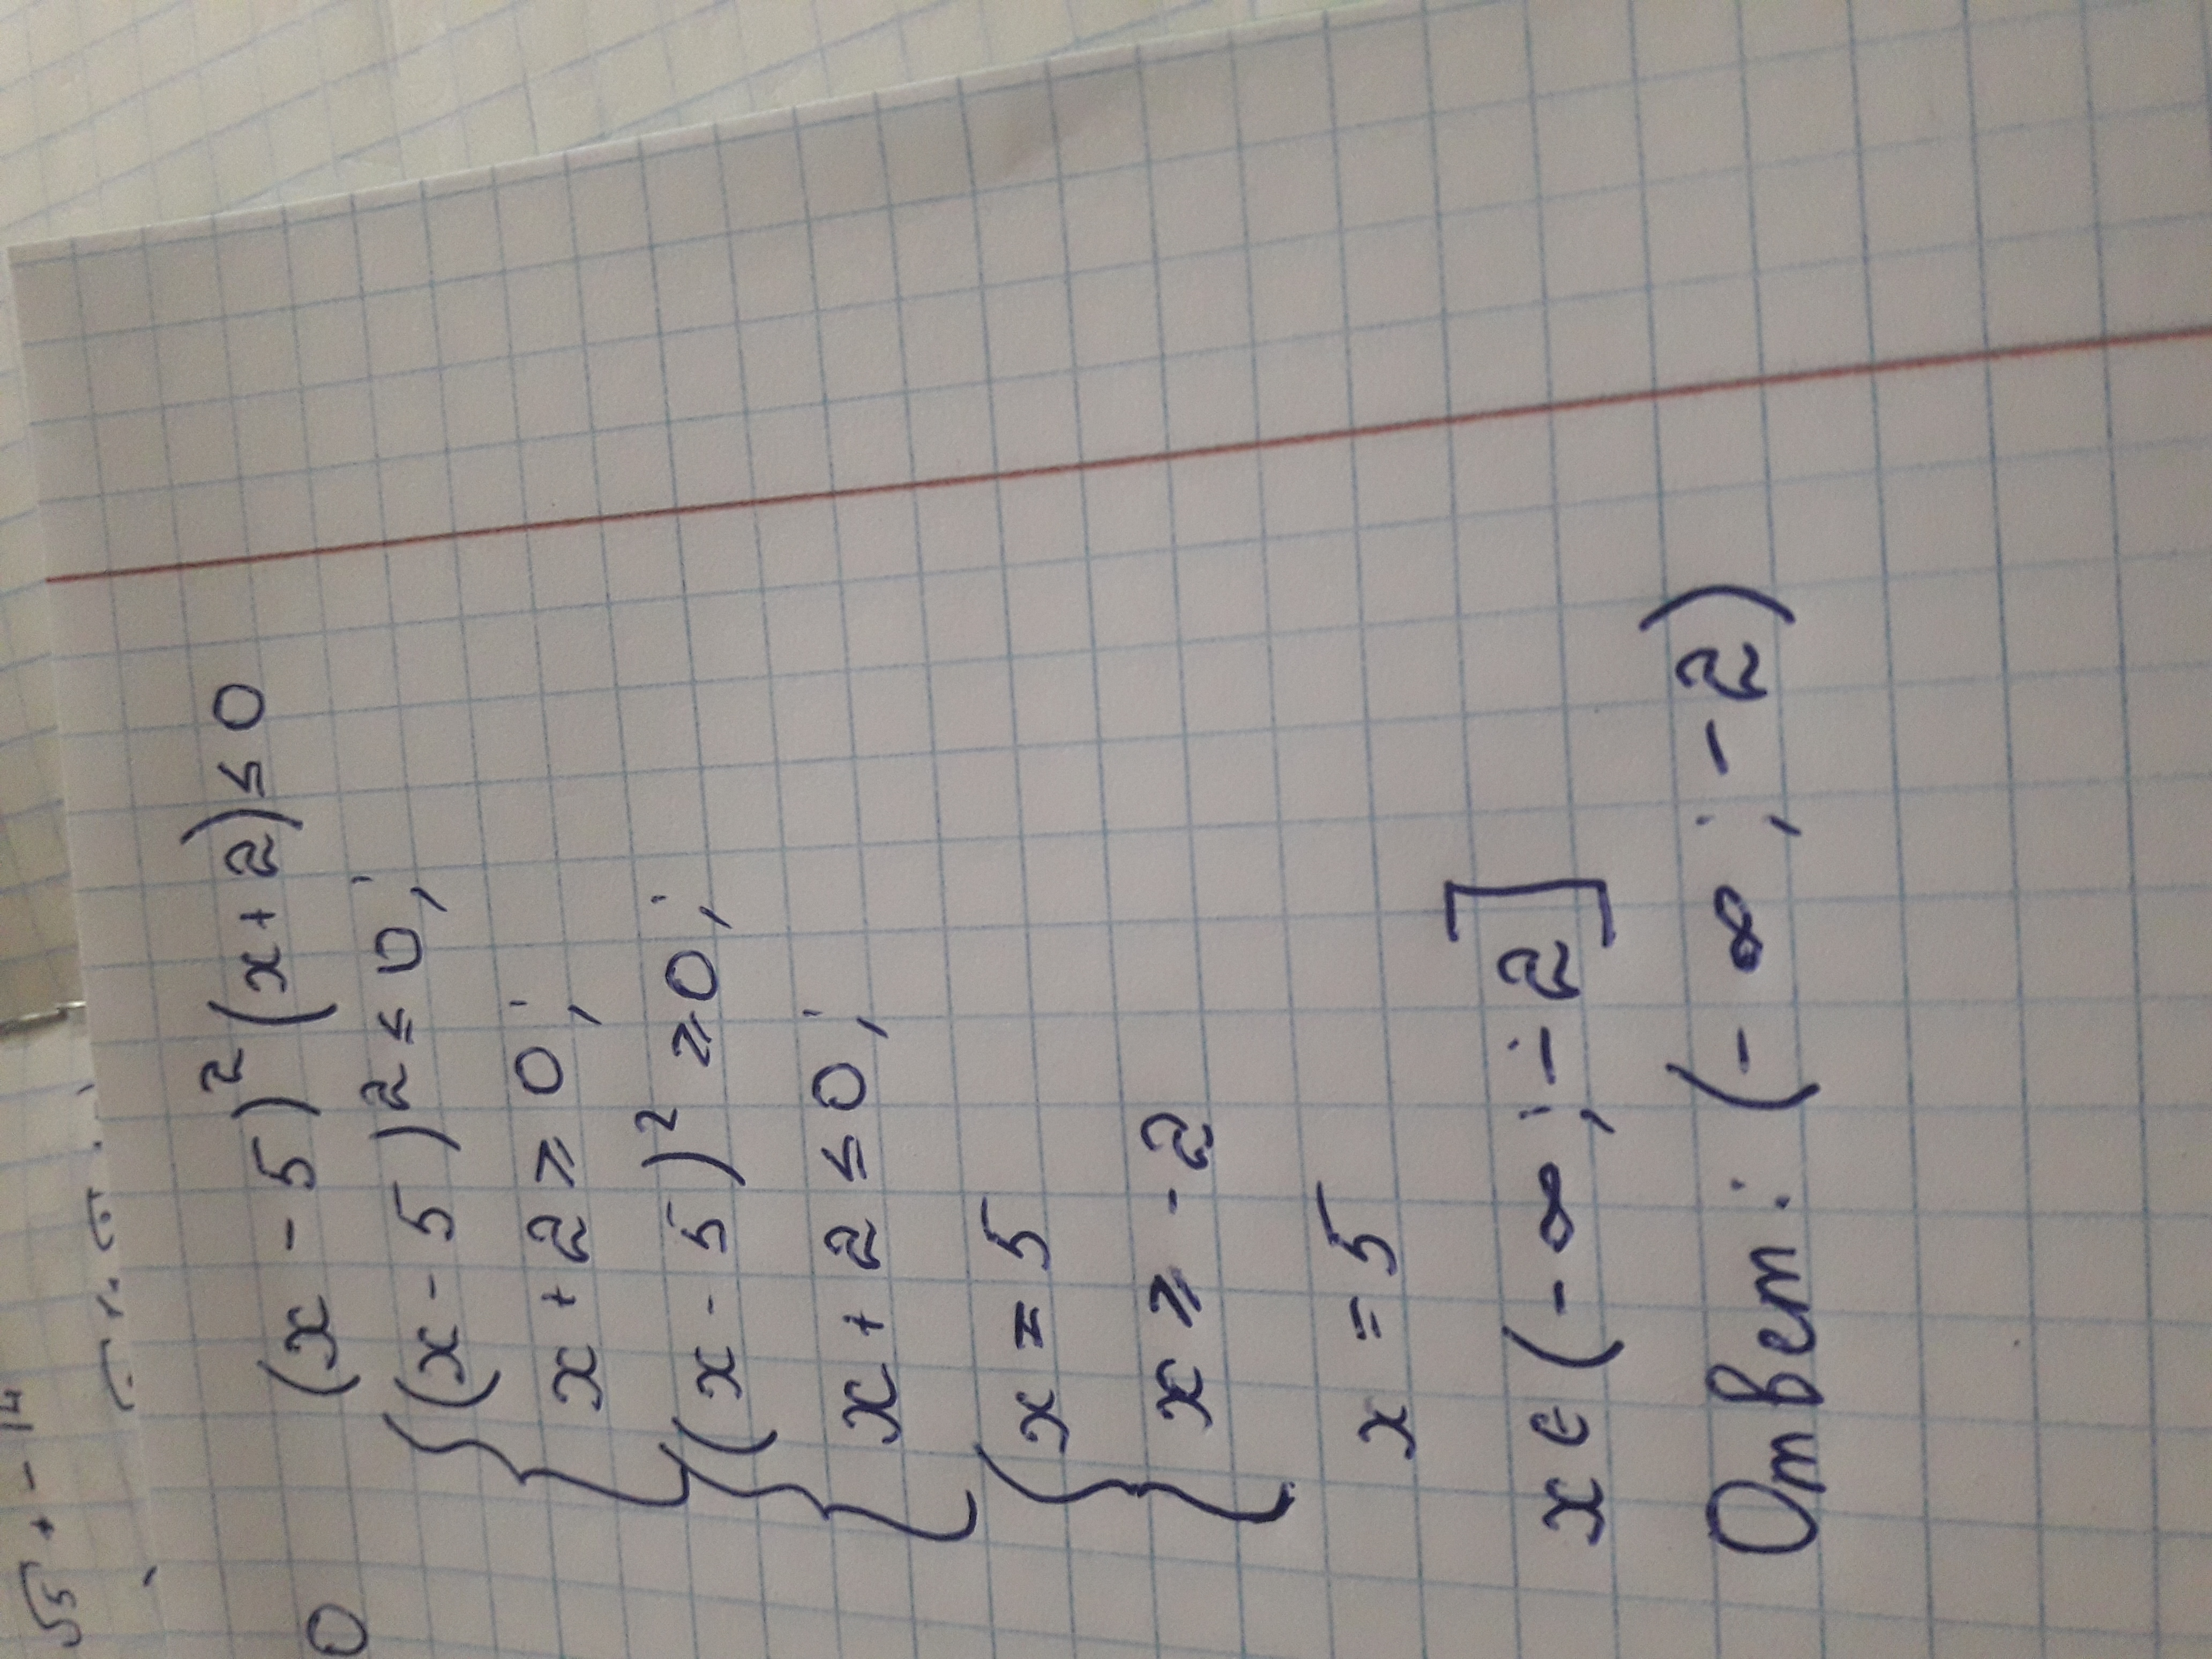 (x - 5)² (x + 2) ≤ 0
{ (x - 5)2 ≤ 0;
x + 2 ⩾ 0;
{ (x - 5)² ⩾ 0;
x + 2 ≤ 0;
{ x = 5
x ⩾ -2
x = 5
x ∈ (-∞; -2]
Ответ: (-∞; -2)